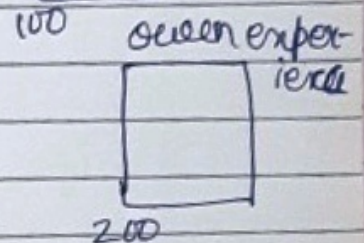 100 Queen exper-
ience
200